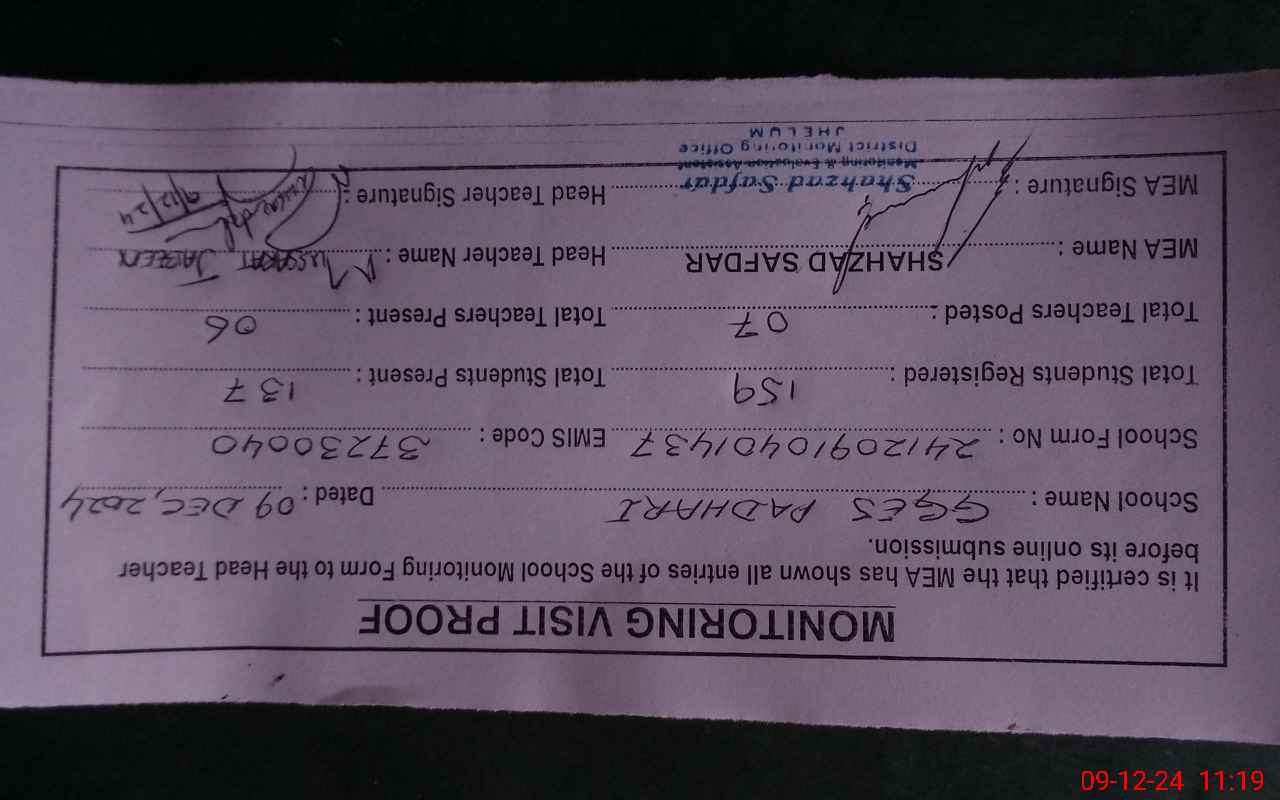 MONITORING VISIT PROOF
It is certified that the MEA has shown all entries of the School Monitoring Form to the Head Teacher
before its online submission.
School Name : GGES PADHARI Dated : 09 DEC, 2024
School Form No : 24120910401437 EMIS Code : 37230040
Total Students Registered : 159 Total Students Present : 137
Total Teachers Posted : 07 Total Teachers Present : 06
MEA Name : SHAHZAD SAFDAR Head Teacher Name : MUSSARAT JABEEN
MEA Signature : Shahzad Safdar Head Teacher Signature : 9/12/24
Monitoring & Evaluation Assistant
District Monitoring Office
JHELUM
09-12-24 11:19